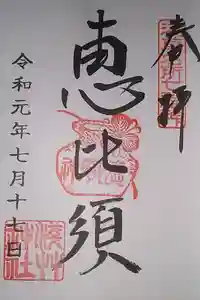 奉拝
恵比須
令和元年七月十七日